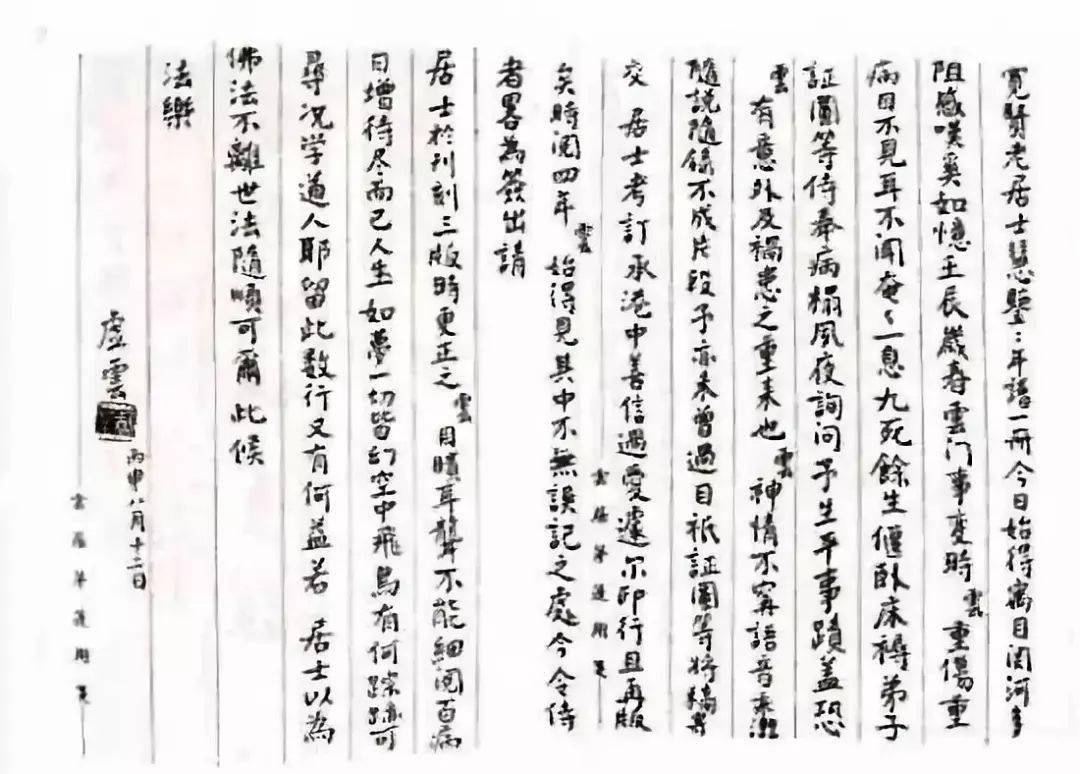 寬賢老居士慧鑒：年譜一冊今日始得寓目関河多
阻感嘆奚如憶壬辰歲春雲门事变時雲重傷重
病目不見耳不闻奄々一息九死餘生偃卧床褥弟子
証圓等侍奉病榻夙夜詢问予生平事蹟蓋恐
雲有意外及禍患之重来也雲神情不寗語音
隨說隨錄不成片段予亦未曾過目祇証圓等将稿寄
交 居士考訂承港中善信過愛遽尔印行且再版
矣時阅四年雲始得見其中不無誤記之處今令侍
者畧為簽出請
居士於刋刻三版時更正之雲目瞶耳聾不能細阅百病
日增待尽而已人生如夢一切皆幻空中飛鳥有何踪跡可
尋况学道人耶留此数行又有何益若 居士以為
佛法不離世法隨順可爾 此候
法樂
虛雲
丙申八月十二日